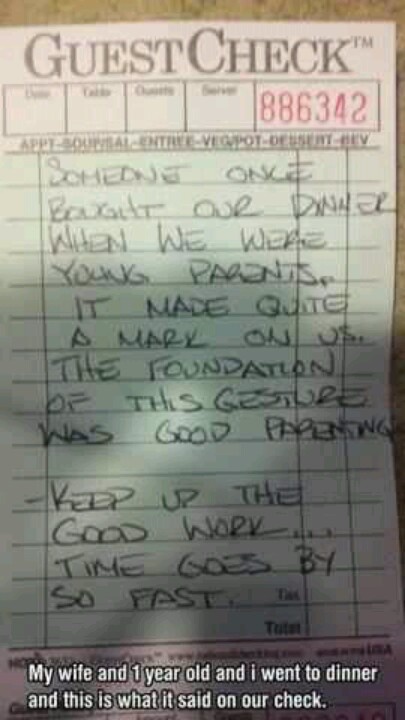 GUEST CHECK™
Date Table Guests Server
886342
APPT-SOUP/SAL-ENTREE-VEG/POT-DESSERT-BEV
SOMEONE ONCE
BOUGHT OUR DINNER
WHEN WE WERE
YOUNG PARENTS.
IT MADE QUITE
A MARK ON US.
THE FOUNDATION
OF THIS GESTURE
WAS GOOD PARENTING
-KEEP UP THE
GOOD WORK....
TIME GOES BY
SO FAST. Tax
Total
USA
My wife and 1 year old and i went to dinner
and this is what it said on our check.